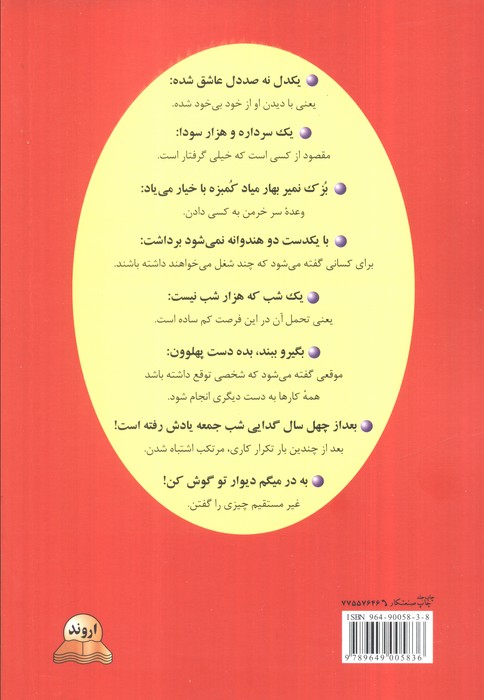 یکدل نه صددل عاشق شده:
یعنی با دیدن او از خود بی‌خود شده.
یک سرداره و هزار سودا:
مقصود از کسی است که خیلی گرفتار است.
بُزک نمیر بهار میاد کُمبزه با خیار می‌یاد:
وعدهٔ سر خرمن به کسی دادن.
با یکدست دو هندوانه نمی‌شود برداشت:
برای کسانی گفته می‌شود که چند شغل می‌خواهند داشته باشند.
یک شب که هزار شب نیست:
یعنی تحمل آن در این فرصت کم ساده است.
بگیرو ببند، بده دست پهلوون:
موقعی گفته می‌شود که شخصی توقع داشته باشد
همهٔ کارها به دست دیگری انجام شود.
بعداز چهل سال گدایی شب جمعه یادش رفته است!
بعد از چندین بار تکرار کاری، مرتکب اشتباه شدن.
به در میگم دیوار تو گوش کن!
غیر مستقیم چیزی را گفتن.
چاپ جلد
چاپ صنعتکار ۷۷۵۵۷۶۴۶
ISBN 964-90058-3-8
9 789649 005836
اروند